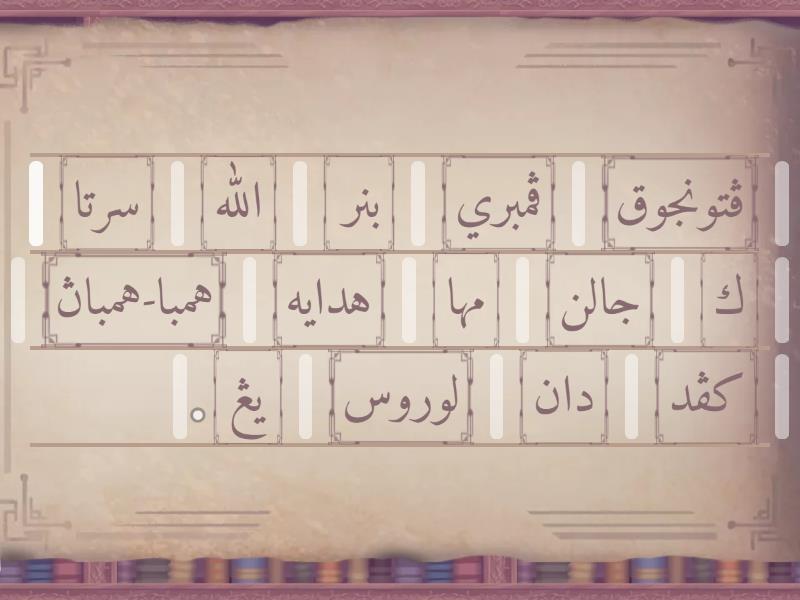 ڤتونجوق ڤمبري بنر الله سرتا
ك جالن مها هدايه همبا-همباڽ
كڤد دان لوروس يڠ .